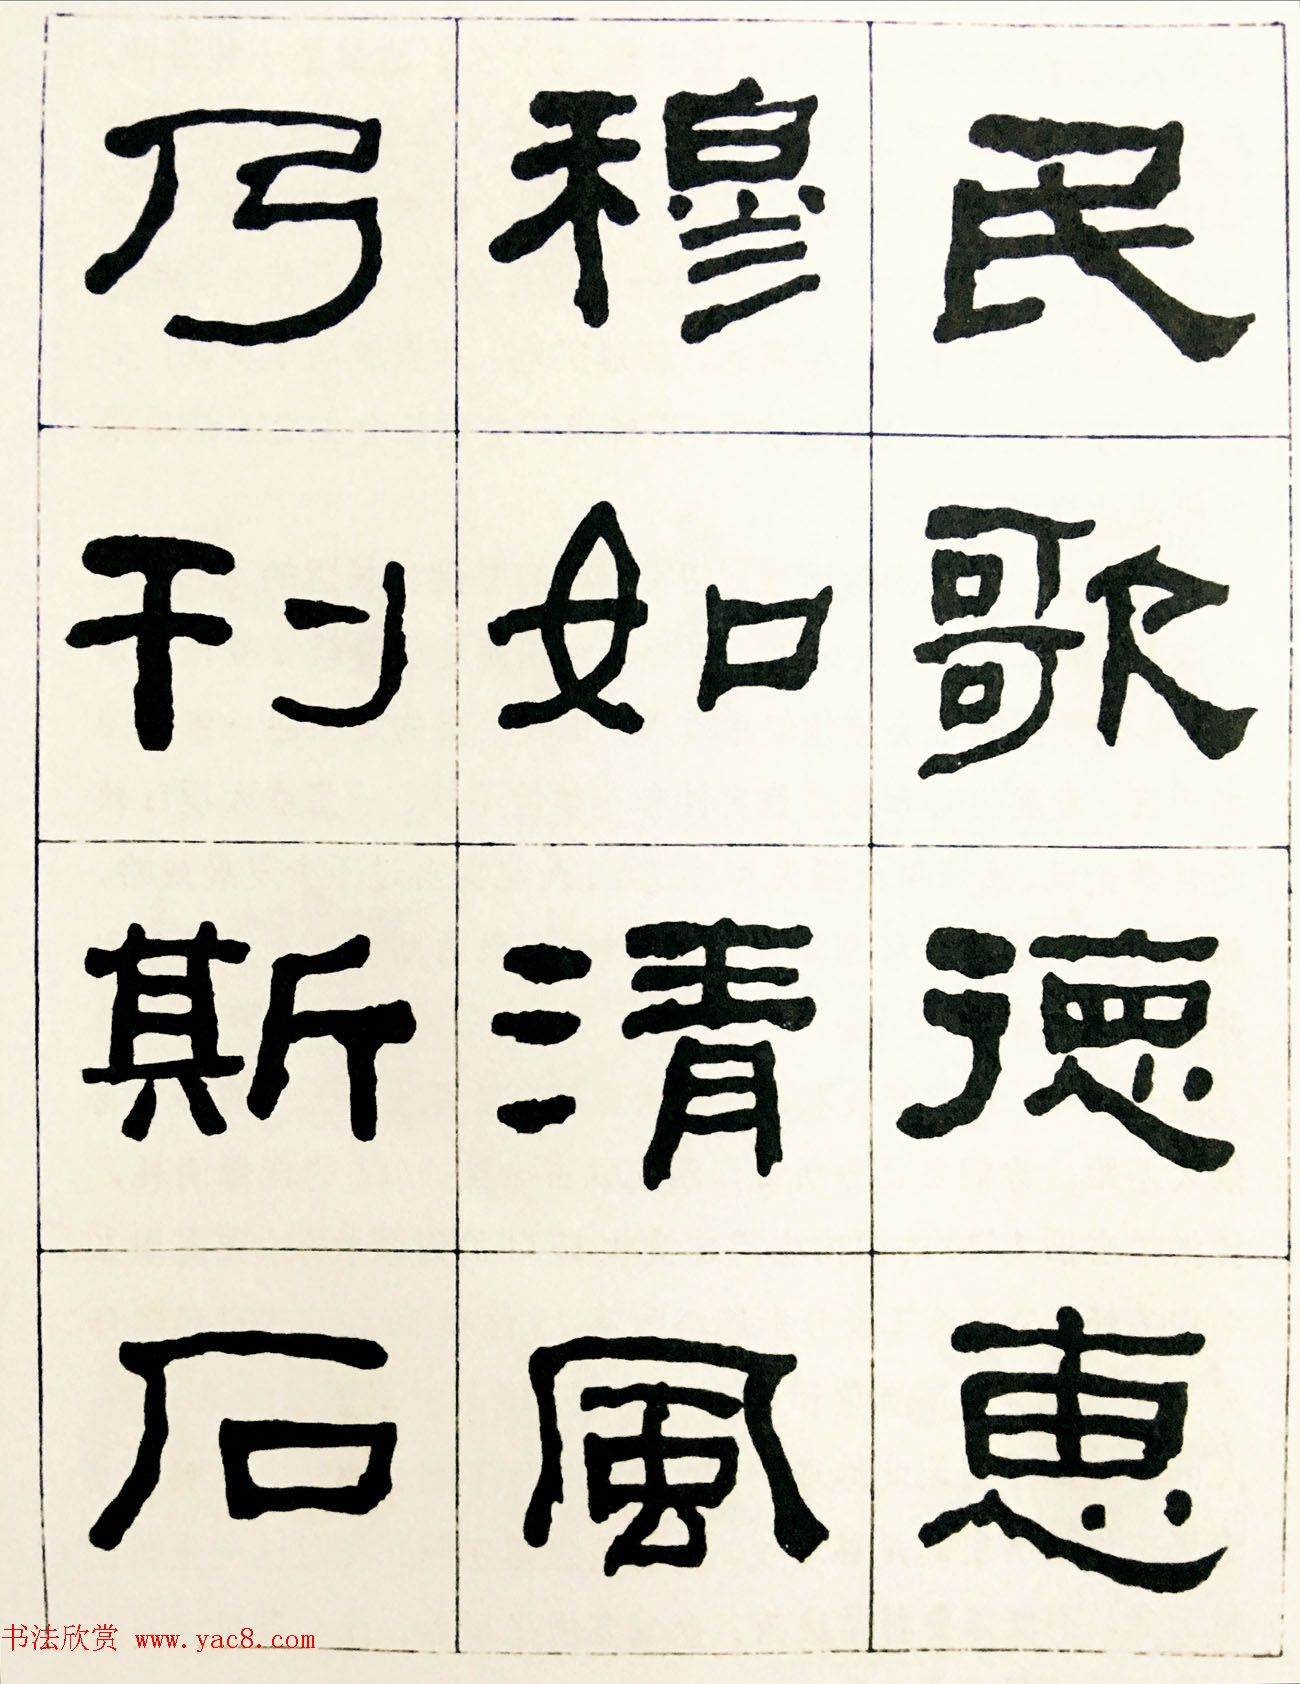 民歌德惠
穆如清風
乃刊斯石
书法欣赏 www.yac8.com